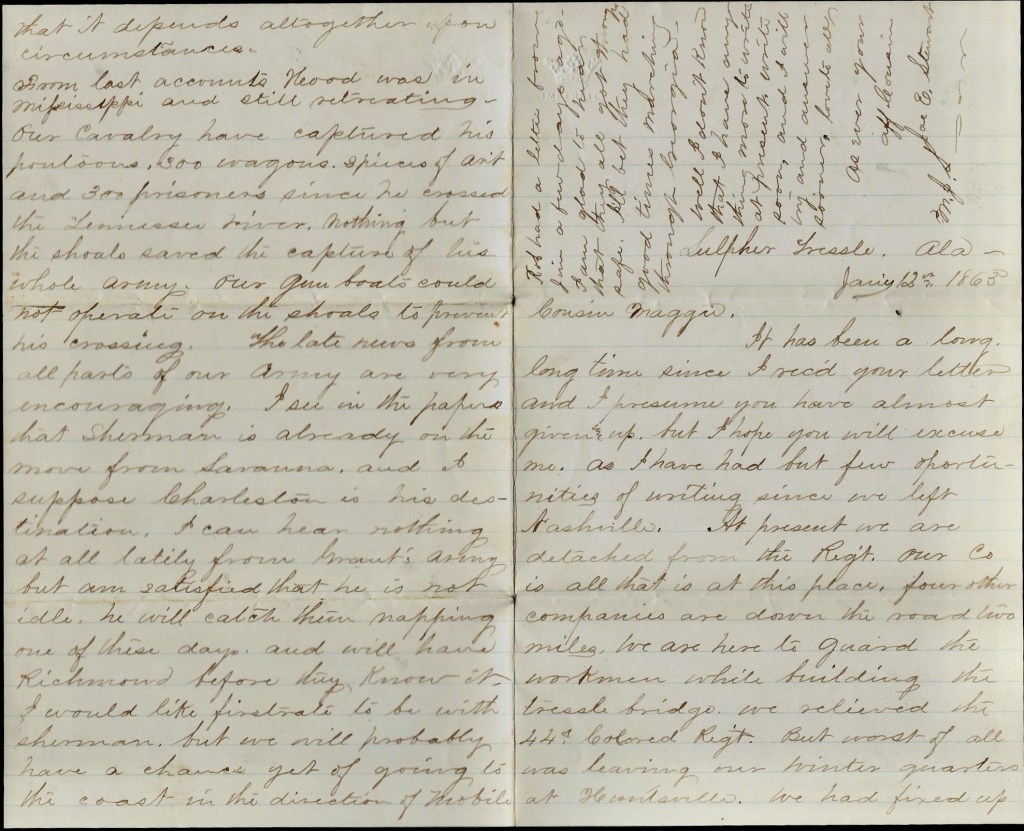 that it depends altogether upon
circumstances.
From last accounts Hood was in
Mississippi and still retreating.
Our Cavalry have captured his
pontoons, 300 wagons. 3 pieces of Art
and 300 prisoners since he crossed
the Tennessee river. Nothing but
the shoals saved the capture of his
whole army. Our gun boats could
not operate on the shoals to prevent
his crossing. The late news from
all parts of our Army are very
encouraging. I see in the papers
that Sherman is already on the
move from Savanna, and I
suppose Charleston is his des-
tination. I can hear nothing
at all latily from Grant's army
but am satisfied that he is not
idle. he will catch them napping
one of these days. and will have
Richmond before they know it
I would like firstrate to be with
sherman. but we will probably
have a chance yet of going to
the coast in the direction of Mobile
Rob had a letter from
Jim a few days ago.
I am glad to hear
that they all got through
safe. I'll bet they had
good times marching
through Georgia.
Well I don't know
that I have any
thing more to write
at present. write
soon, and I will
try and answer
sooner, love to all,
As ever your
aff Cousin
Jas. E. Stewart
M.J.S.
Sulpher Tressle. Ala -
Jany 12th 1865
Cousin Maggie.
It has been a long.
long time since I rec'd your letter
and I presume you have almost
given up. but I hope you will excuse
me. as I have had but few oportu-
nities of writing since we left
Nashville. At present we are
detached from the Regt. Our Co
is all that is at this place, four other
companies are down the road two
miles. We are here to guard the
workmen while building the
tressle bridge. we relieved the
44th Colored Regt. But worst of all
was leaving our winter quarters
at Huntsville. We had fixed up